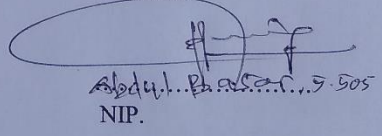 Abdul..Basar..S.SOS
NIP.